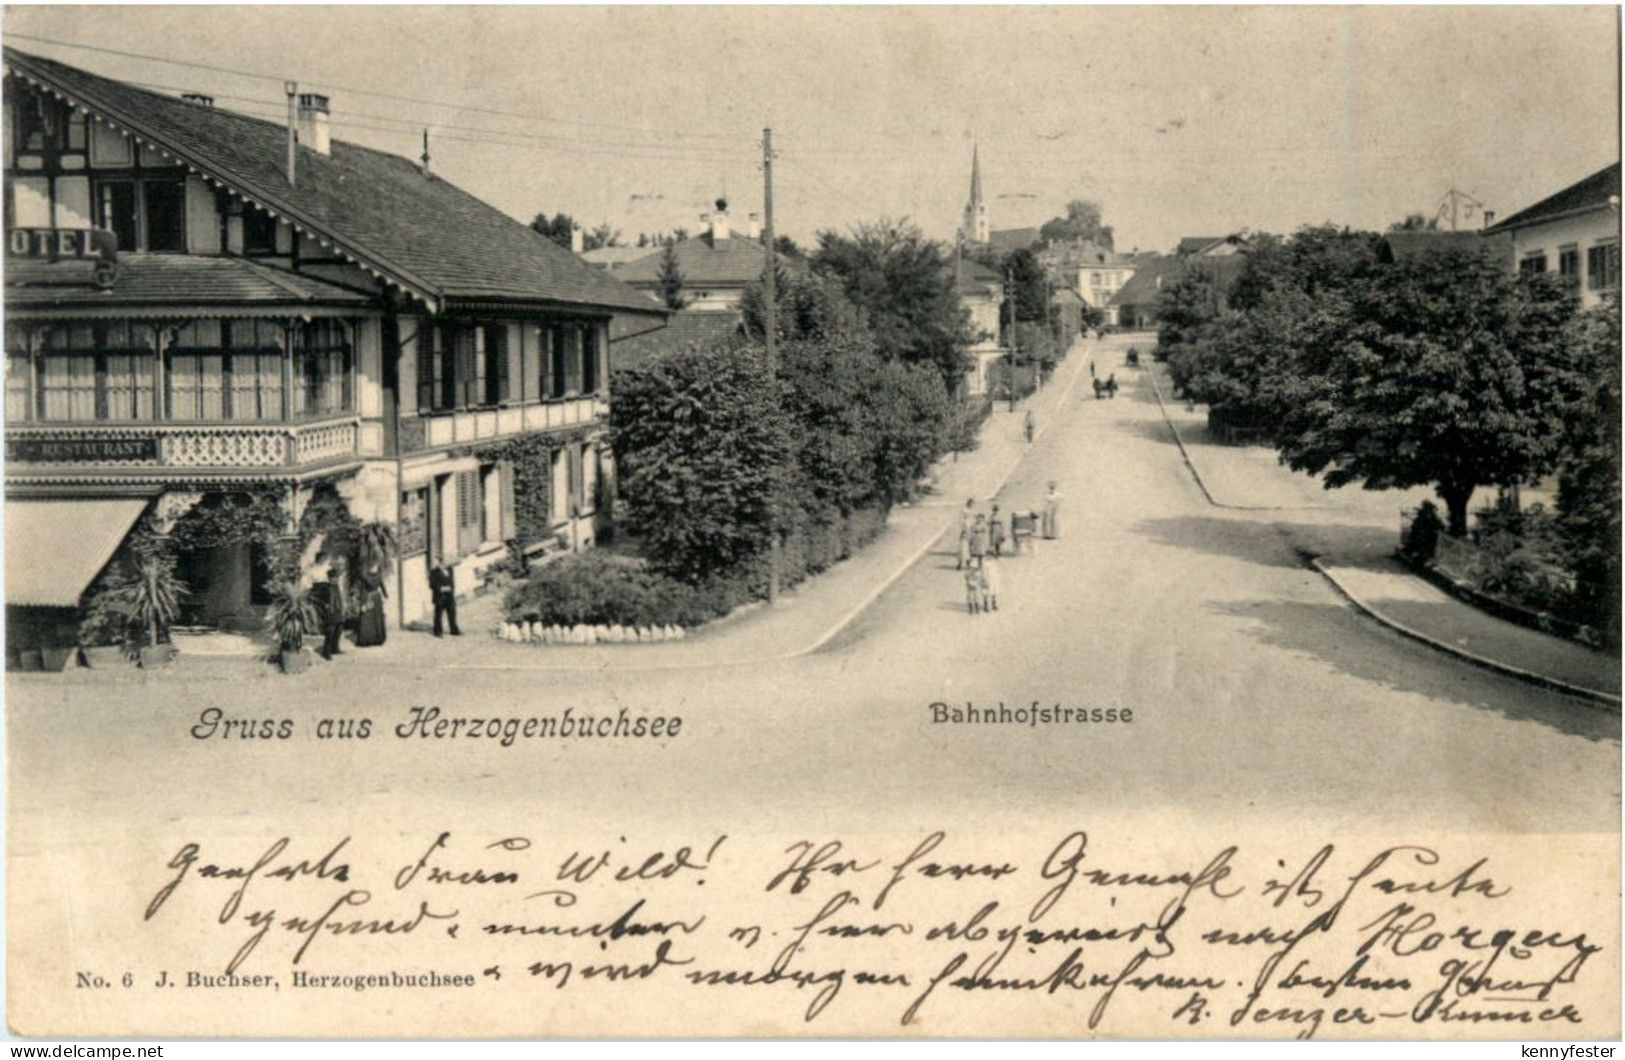 OTEL
RESTAURANT
Gruss aus Herzogenbuchsee
Bahnhofstrasse
Geehrte Frau Wild! Ihr Herr Gemahl ist heute
gesund & munter v. hier abgereist nach Morgen
No. 6 J. Buchser, Herzogenbuchsee
& wird morgen heimkehren. besten Gruss
R.
delcampe.net
kennyfester